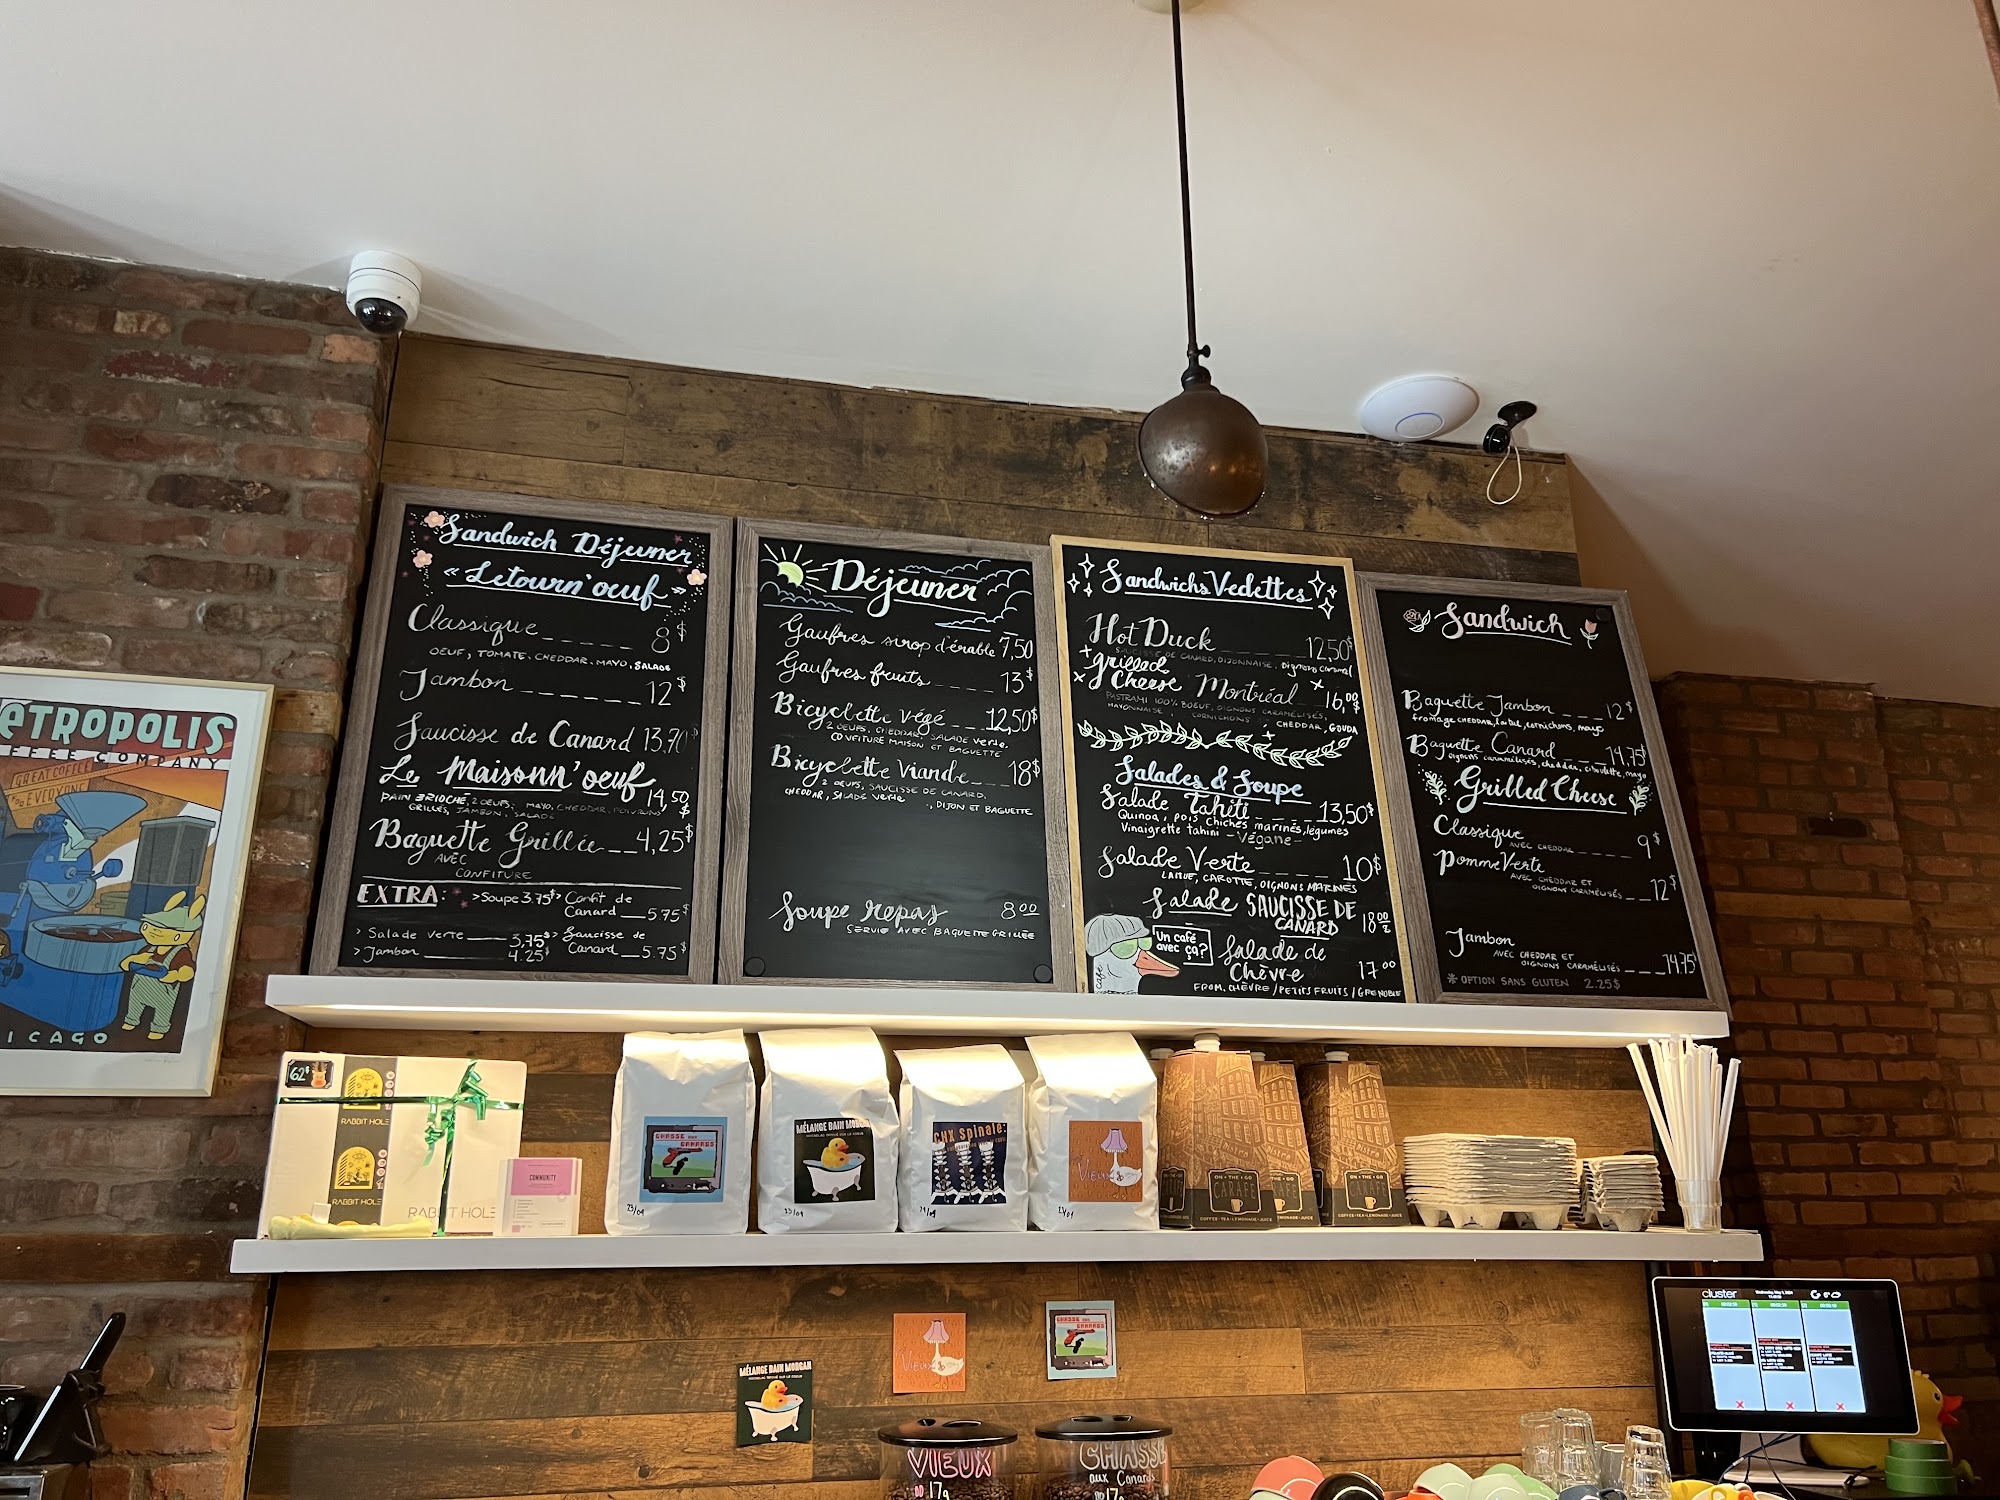 Sandwich Déjeuner
« Letourn'oeuf »
Classique _ _ _ _ _ 8$
OEUF, TOMATE, CHEDDAR, MAYO, SALADE
Jambon _ _ _ _ _ _ 12$
Saucisse de Canard 13,70$
Le Maisonn'oeuf 14,50$
PAIN BRIOCHÉ, 2 OEUFS, MAYO, CHEDDAR, POIVRONS
GRILLÉS, JAMBON, SALADE
Baguette Grillée _ _ 4,25$
AVEC
CONFITURE
EXTRA:
> Soupe 3.75$
> Confit de
Canard __ 5.75$
> Salade verte ___ 3,75$
> Saucisse de
Canard __ 5.75$
> Jambon ___ 4.25$
Déjeuner
Gaufres sirop d'érable 7,50
Gaufres fruits _ _ _ _ 13$
Bicyclette végé _ _ 12,50$
2 OEUFS, CHEDDAR, SALADE verte,
CONFITURE MAISON ET BAGUETTE
Bicyclette Viande _ _ 18$
2 OEUFS, SAUCISSE DE CANARD,
CHEDDAR, SALADE verte, DIJON ET BAGUETTE
Soupe repas 8.00
SERVIE AVEC BAGUETTE GRILLÉE
Sandwichs Vedettes
Hot Duck _ _ _ _ _ 12,50$
SAUCISSE DE CANARD, DIJONNAISE, Oignons caramel
Grilled
Cheese Montréal _ _ 16,00$
PASTRAMI 100% BOEUF, OIGNONS CARAMÉLISÉS,
MAYONNAISE, CORNICHONS, CHEDDAR, GOUDA
Salades & Soupe
Salade Tahiti _ _ _ _ 13,50$
Quinoa, pois chiches marinés, légumes
Vinaigrette tahini - Végane -
Salade Verte _ _ _ _ 10$
LAITUE, CAROTTE, OIGNONS MARINÉS
Salade SAUCISSE DE
CANARD 18.00
Un café
avec ça?
café
Salade de
Chèvre 17.00
FROM. CHÈVRE / PETITS FRUITS / GRENOBLE
Sandwich
Baguette Jambon _ _ _ 12$
fromage CHEDDAR, laitue, cornichons, mayo
Baguette Canard _ _ _ 14,75$
oignons caramélisés, cheddar, ciboulette, mayo
Grilled Cheese
Classique
AVEC CHEDDAR _ _ _ _ _ 9$
Pomme Verte
AVEC CHEDDAR ET
OIGNONS CARAMÉLISÉS _ _ 12$
Jambon
AVEC CHEDDAR ET
OIGNONS CARAMÉLISÉS _ _ _ 14.75$
* OPTION SANS GLUTEN 2.25$
ETROPOLIS
COMPANY
GREAT COFFEE
FOR EVERYONE
ICAGO
62$
RABBIT HOLE
RABBIT HOLE
RABBIT HOLE
COMMUNITY
CHASSE AUX
CANARDS
23/04
MÉLANGE BAIN MORGAN
23/04
CHX Spinale:
VIEUX
ON • THE • GO
CARAFE
COFFEE • TEA • LEMONADE • JUICE
ON • THE • GO
COFFEE • TEA • LEMONADE • JUICE
MÉLANGE BAIN MORGAN
VIEUX
CHASSE AUX
CANARDS
VIEUX
17g
CHASSE
aux Canards
17g
cluster